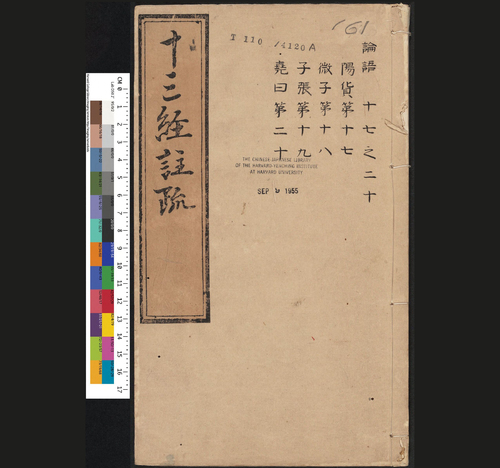 論語 十七之二十
陽貨第十七
微子第十八
子張第十九
堯曰第二十
十三經註疏
T 110 /4120A
161
THE CHINESE-JAPANESE LIBRARY
OF THE HARVARD-YENCHING INSTITUTE
AT HARVARD UNIVERSITY
SEP 6 1955
CM 0 1 2 3 4 5 6 7 8 9 10 11 12 13 14 15 16 17